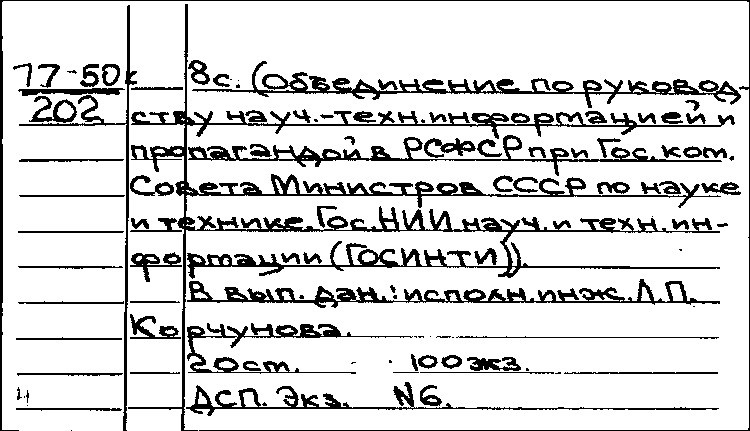 77-50к 8с. (Объединение по руковод-
202 ству науч.-техн.информацией и
пропагандой в РСФСР при Гос. ком.
Совета Министров СССР по науке
и технике. Гос. НИИ науч. и техн. ин-
формации (ГОСИНТИ)).
В вып. дан.: исполн. инж. Л.П.
Корчунова.
20 ст. 100 экз.
4 ДСП. Экз. N6.